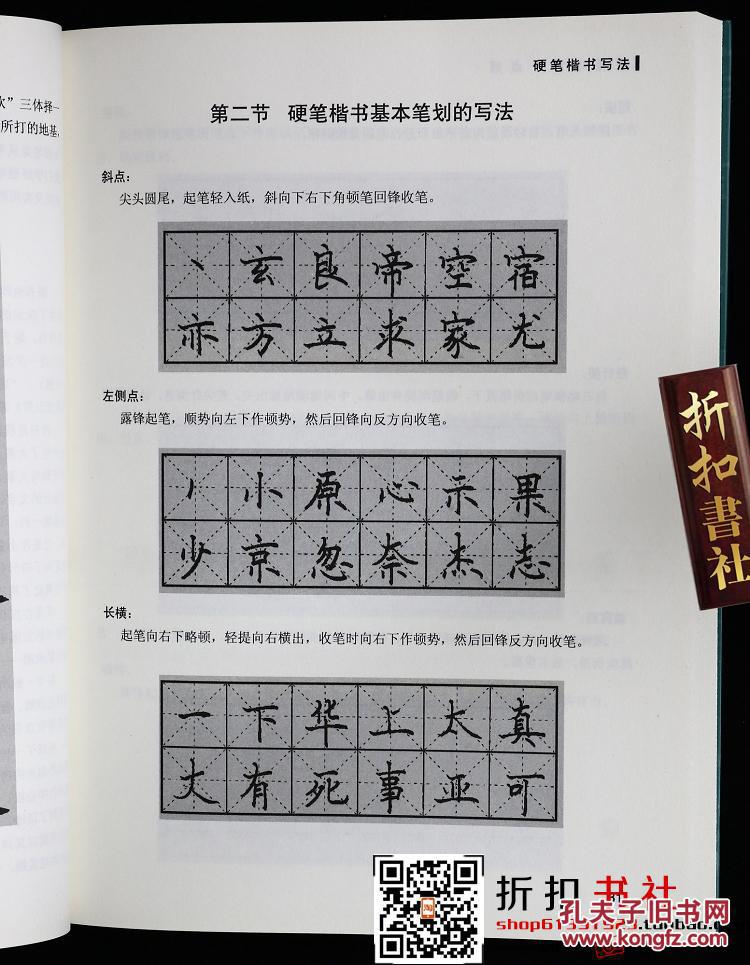 硬笔楷书写法
欢”三体择一
所打的地基,
第二节 硬笔楷书基本笔划的写法
斜点：
尖头圆尾，起笔轻入纸，斜向下右下角顿笔回锋收笔。
丶玄良帝空宿
亦方立求家尤
左侧点：
露锋起笔，顺势向左下作顿势，然后回锋向反方向收笔。
小原心示果
少京忽奈杰志
长横：
起笔向右下略顿，轻提向右横出，收笔时向右下作顿势，然后回锋反方向收笔。
一下华上太真
大有死事亚可
折扣書社
折扣书社
孔夫子旧书网
www.kongfz.com